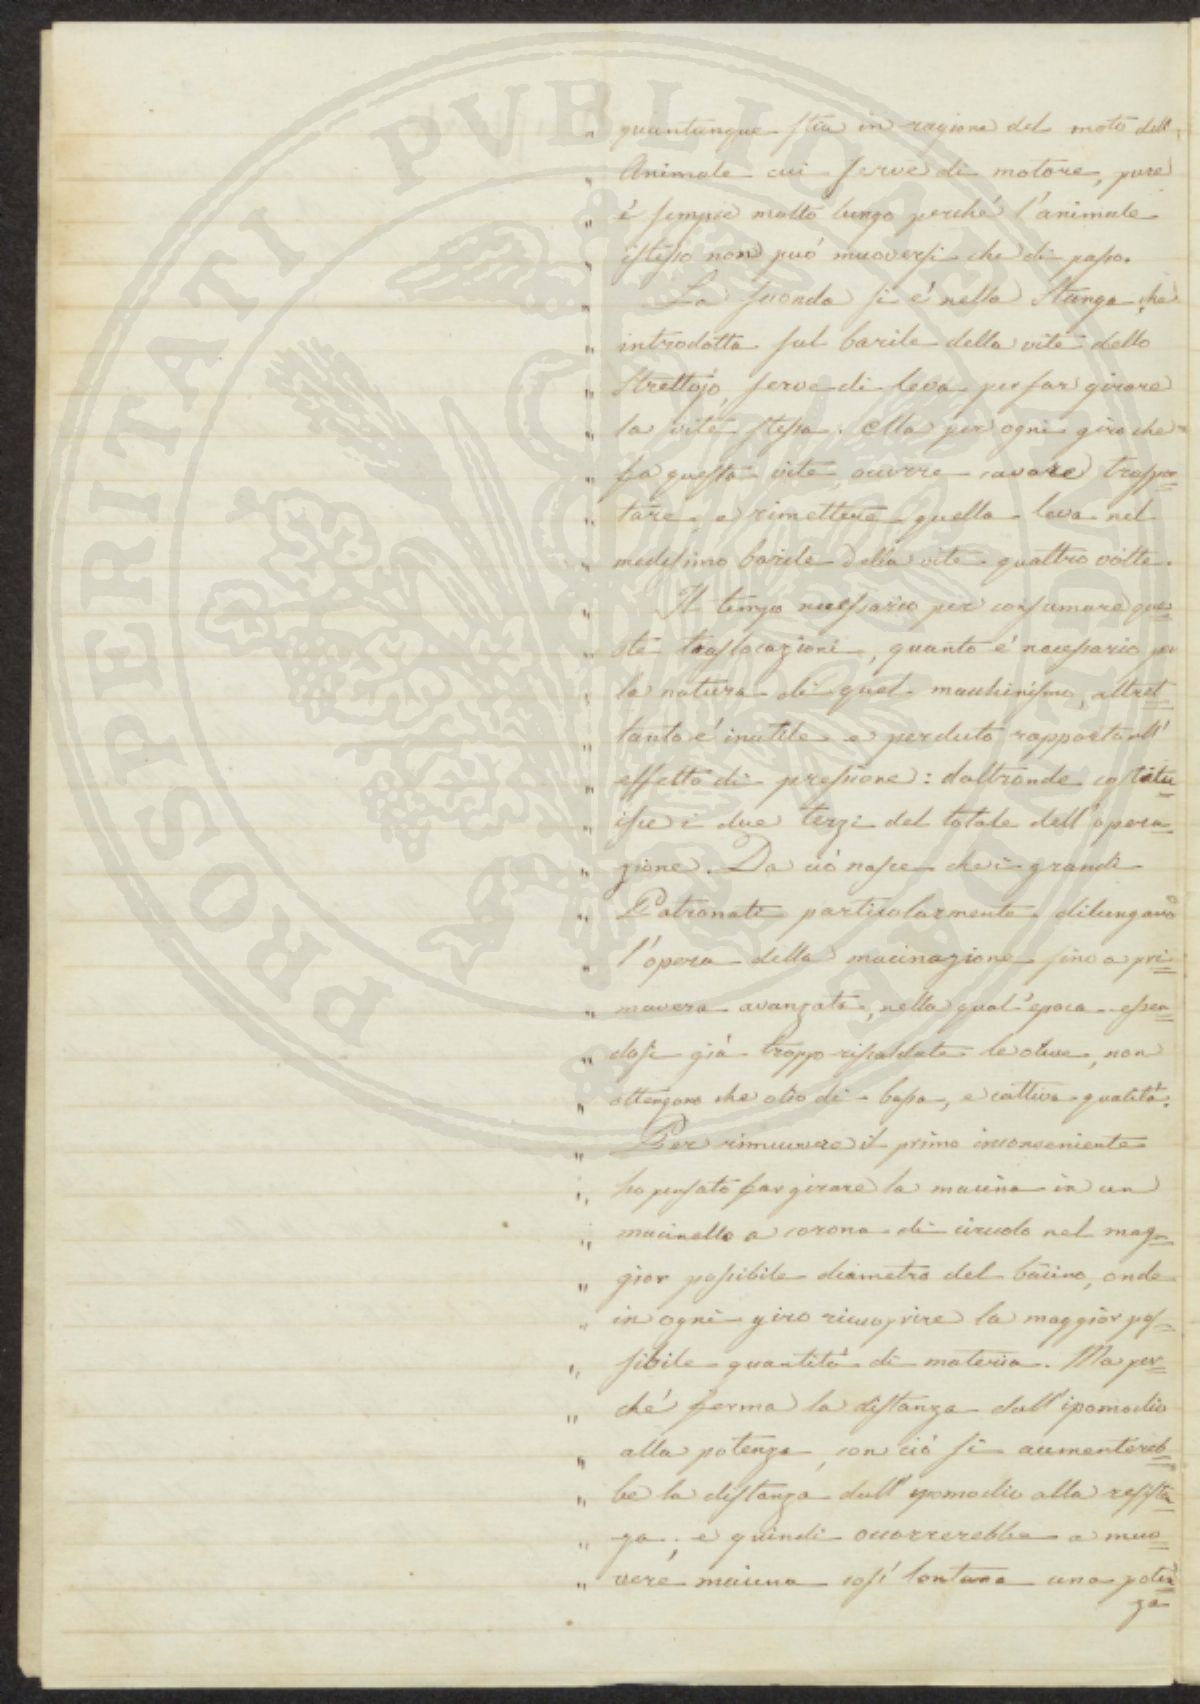 PROSPERITATI PVBLICAE AVGENDAE
" quantunque stia in ragione del moto dell'
" Animale cui serve di motore, pure
" é sempre molto lungo perché l'animale
" istesso non può muoversi che di passo.
" La seconda si é nella Stanga che
" introdotta sul barile della vite dello
" Strettojo, serve di leva per far girare
" la vite stessa. Ma per ogni giro che
" fa questa vite occorre cavare traspor=
" tare e rimettere quella leva nel
" medesimo barile della vite quattro volte.
" Il tempo necessario per consumare que=
" ste traslocazioni, quanto é necessario per
" la natura di quel macchinismo, altret=
" tanto é inutile e perduto rapporto all'
" effetto di pressione: daltronde costitu=
" isce i due terzi del totale dell'opera=
" zione. Da ció nasce che i grandi
" Patronati particolarmente dilungano
" l'opera della macinazione sino a pri=
" mavera avanzata, nella qual'epoca essen=
" dosi giá troppo riscaldate le olive, non
" ottengono che olio di bassa, e cattiva qualità.
" Per rimuovere il primo inconveniente
" ho pensato far girare la macina in un
" macinello a corona di circolo nel mag=
" gior possibile diametro del bacino, onde
" in ogni giro ricuoprire la maggior pos=
" sibile quantitá di materia. Ma per=
" ché ferma la distanza dall'ipomoclio
" alla potenza, con ció si aumentereb=
" be la distanza dall'ipomoclio alla resisten=
" za, e quindi occorrerebbe a muo=
" vere macina cosí lontana una poten=
za